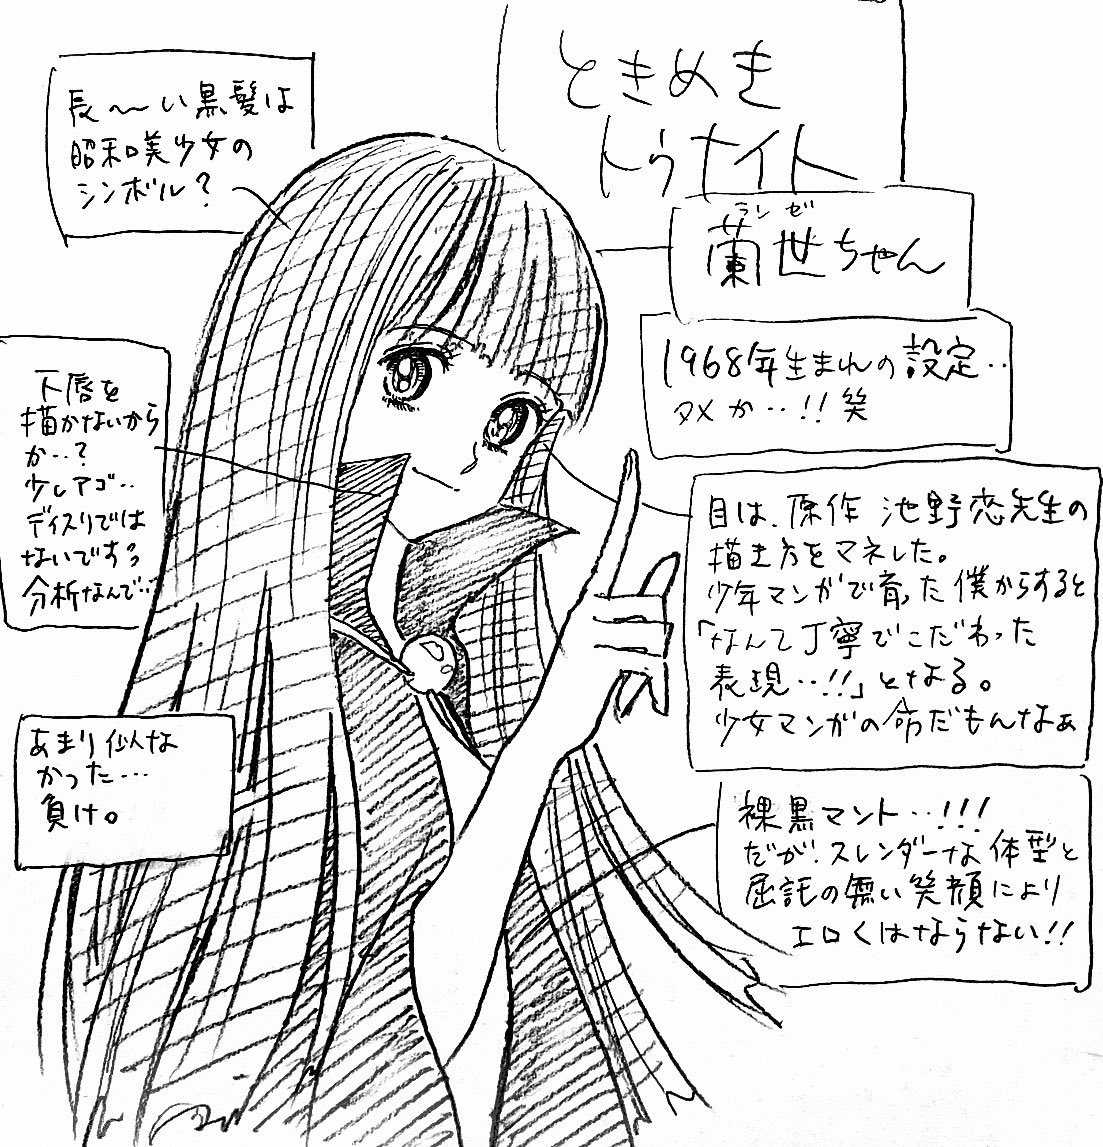 ときめき
トゥナイト
ランゼ
蘭世ちゃん
1968年生まれの設定‥
タメか‥!!笑
長〜い黒髪は
昭和美少女の
シンボル?
下唇を
描かないから
か‥?
少しアゴ‥
ディスリでは
ないですョ
分析なんで‥
目は、原作 池野恋先生の
描き方をマネした。
少年マンガで育った僕からすると
「なんて丁寧でこだわった
表現‥!!」となる。
少女マンガの命だもんなぁ
あまり似な
かった…
負け。
裸黒マント‥!!!
だが、スレンダーな体型と
屈託の無い笑顔により
エロくはならない!!